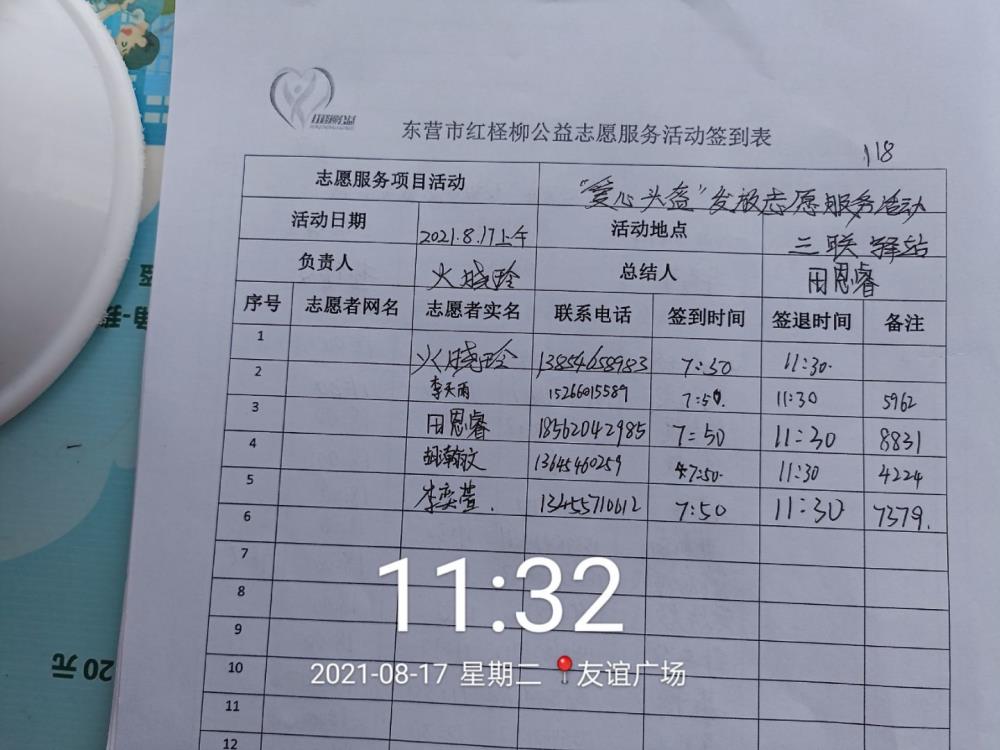 红柽柳公益
东营市红柽柳公益志愿服务活动签到表
118
志愿服务项目活动 "爱心头盔"发放志愿服务活动
活动日期 2021.8.17上午 活动地点 三联驿站
负责人 火晓玲 总结人 田恩睿
序号 志愿者网名 志愿者实名 联系电话 签到时间 签退时间 备注
1 火晓玲 13854658983 7:50 11:30
2 李天雨 15266015589 7:50 11:30 5962
3 田恩睿 18562042985 7:50 11:30 8831
4 胡翰文 13645460259 7:50 11:30 4224
5 李奕萱 13455710612 7:50 11:30 7379
6
7
8
9
10
11
12
11:32
2021-08-17 星期二 友谊广场
20元